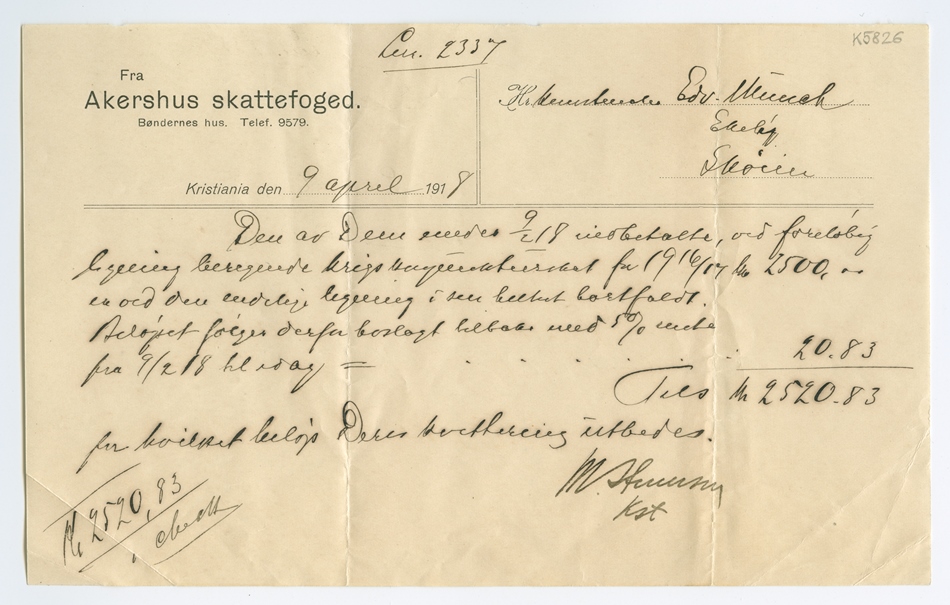 K5826
2337
Fra
Akershus skattefoged.
Bøndernes hus. Telef. 9579.
Hr. Kunstmaler Edv. Munch
Ekely
Skøien
Kristiania den 9 april 1918
Den av Dem under 9/2 18 indbetalte, ved foreløbig
ligning beregnede krigskonjunkturskat for 1916/17 kr 2500,
er ved den endelige ligning i sin helhet bortfaldt.
Beløpet følger derfor vedlagt tilbake med 5% rente
fra 9/2 18 til idag = 20.83
Tils kr 2520.83
for hvilket beløp Deres kvittering utbedes.
Kst
Kr 2520,83
i check